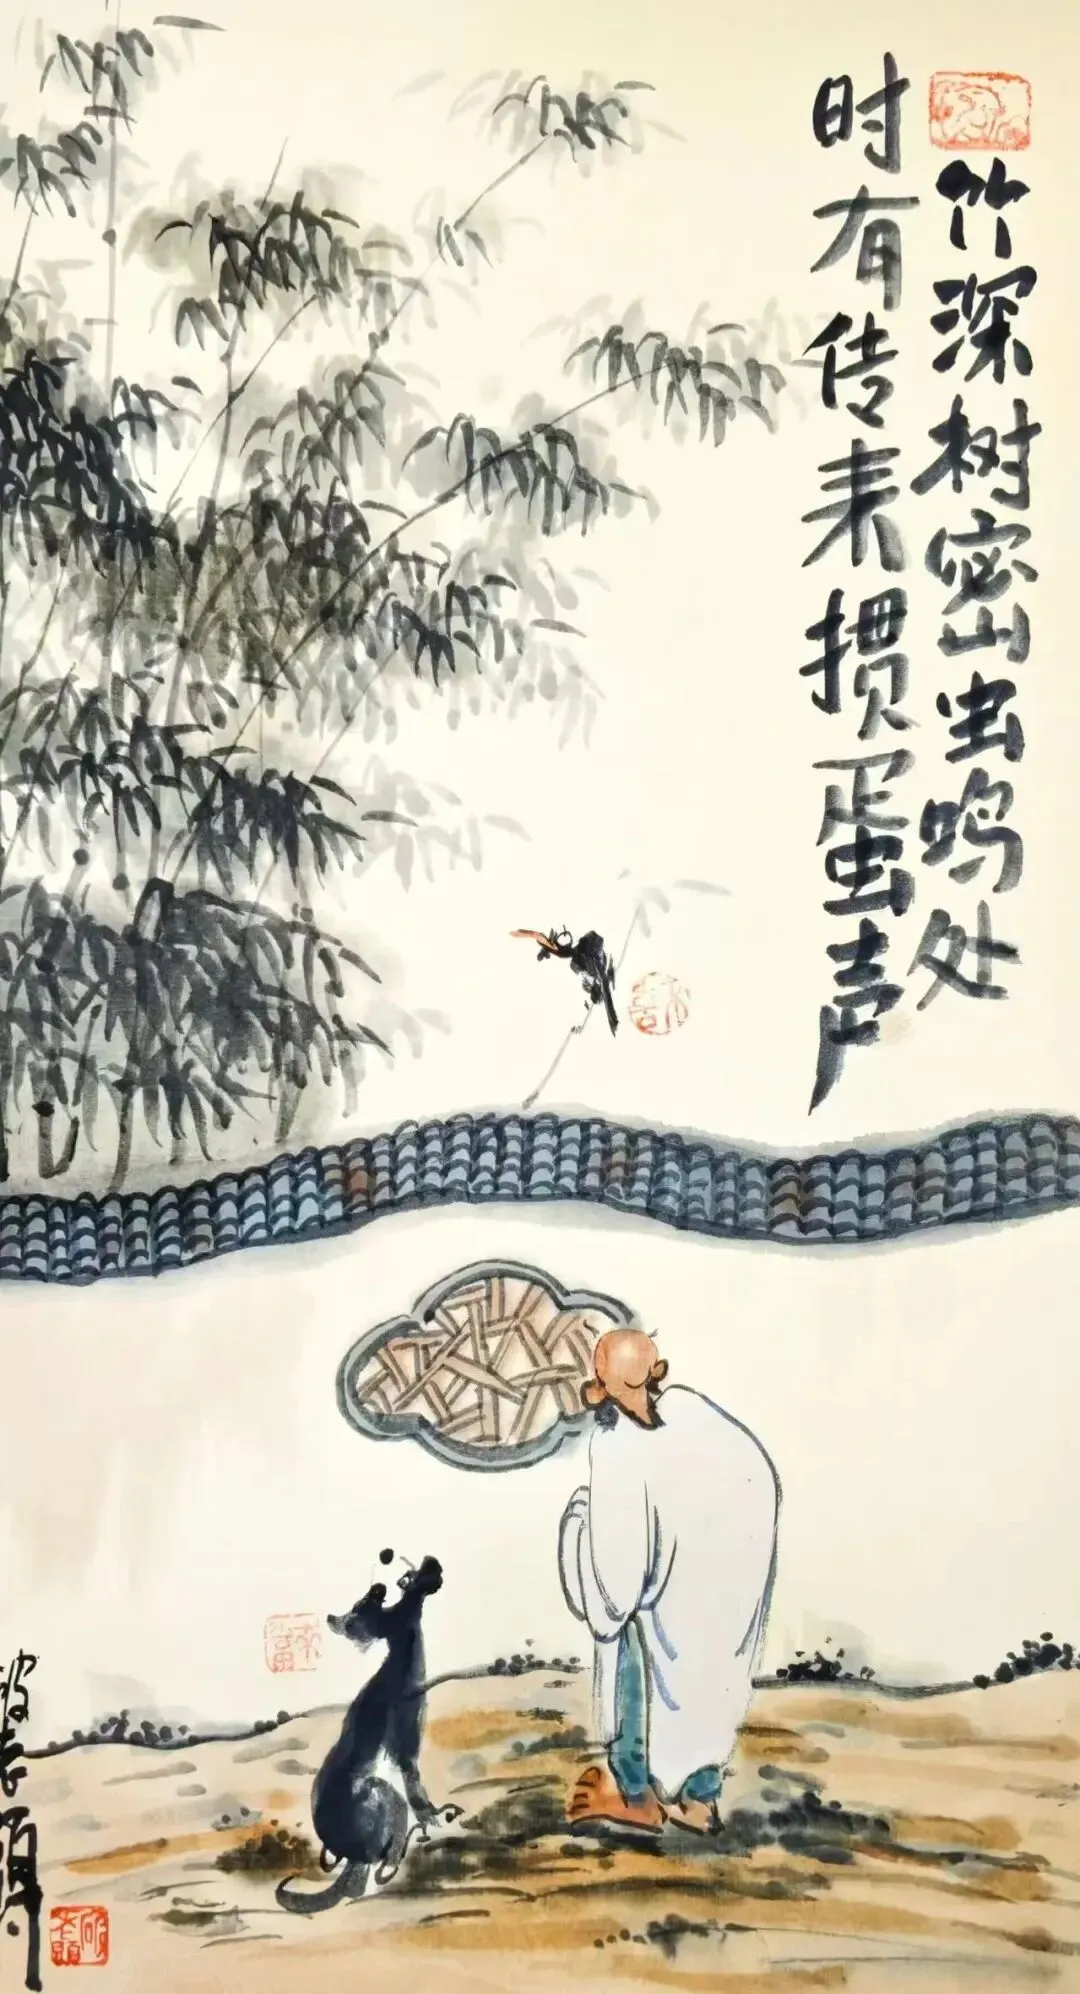 竹深树密山虫鸣处
时有传来掼蛋声